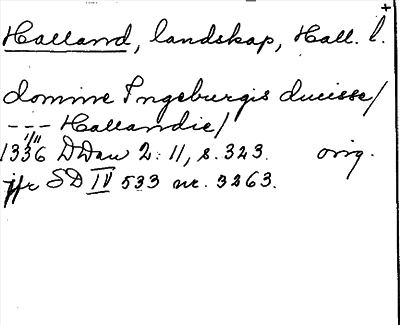 +
Halland, landskap, Hall. l.
domine Ingeburgis ducisse/
--- Hallandie/
1336 11/11 DDan 2:11, s. 323. orig.
jfr SD IV 533 nr. 3263.